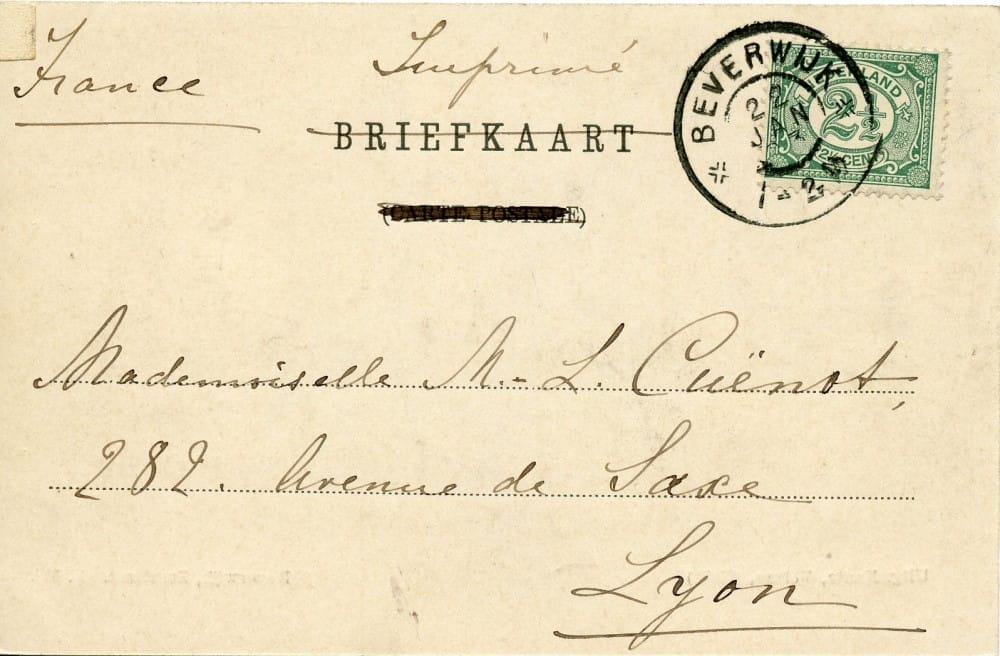 France
Imprimé
BRIEFKAART
(CARTE POSTALE)
BEVERWIJK
22
JAN
NEDERLAND
2½
2½ CENT
Mademoiselle M.-L. Cuënot,
282. Avenue de Saxe
Lyon